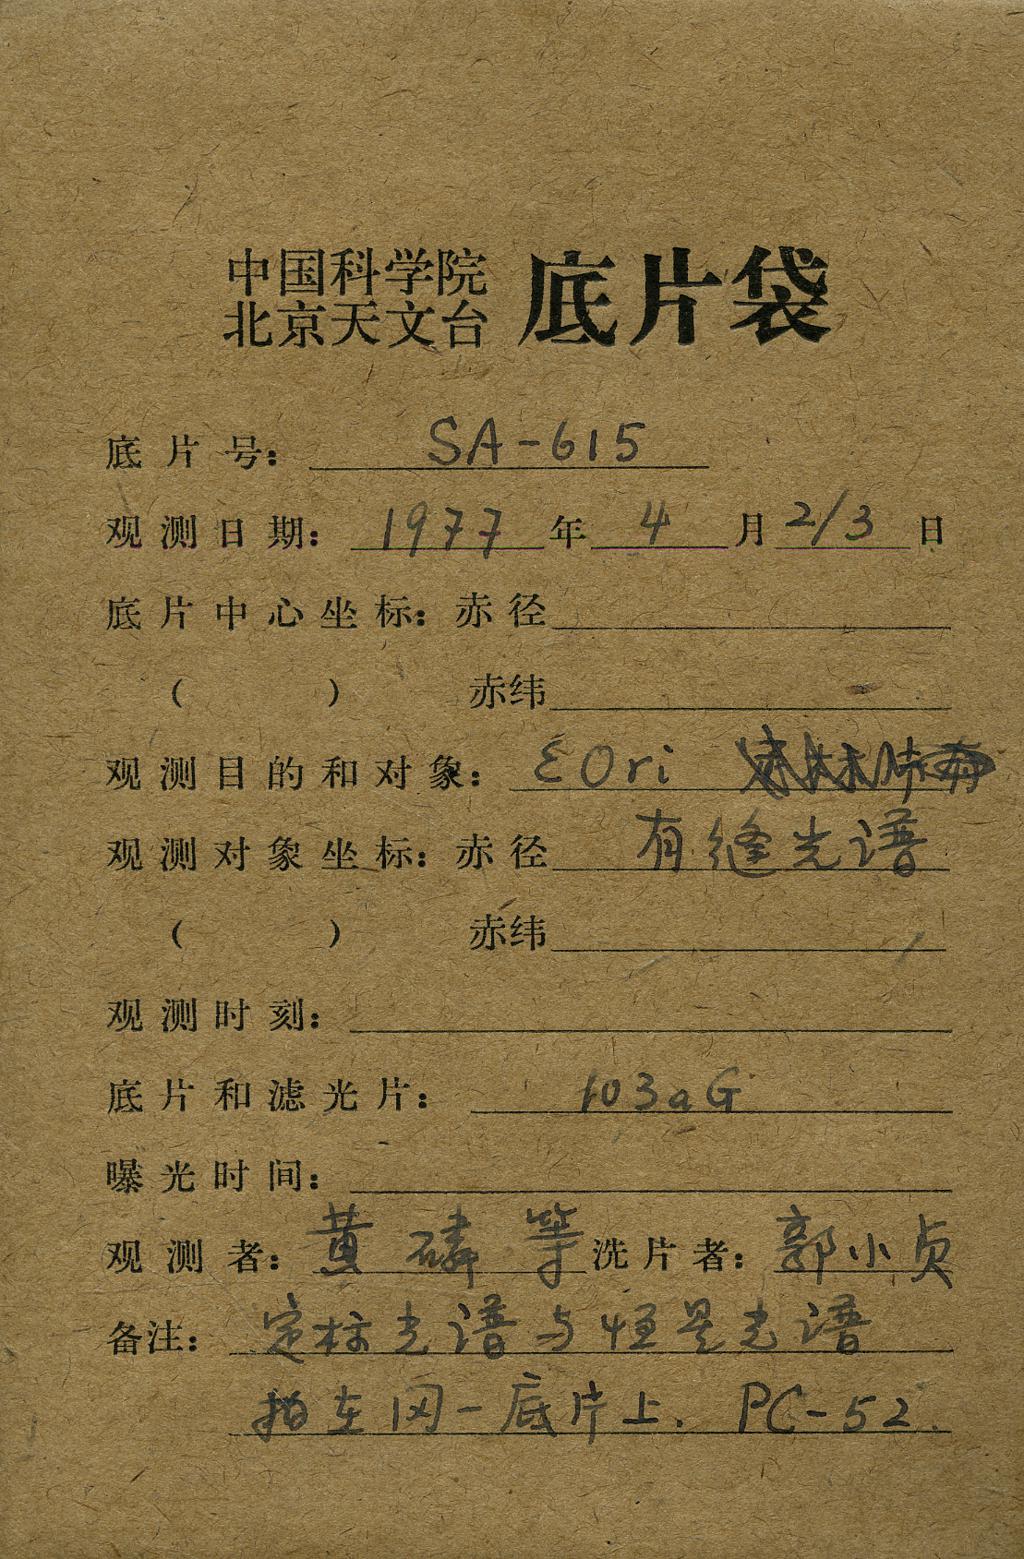 中国科学院
北京天文台 底片袋
底片号: SA-615
观测日期: 1977 年 4 月 2/3 日
底片中心坐标: 赤径
( ) 赤纬
观测目的和对象: εOri
观测对象坐标: 赤径 有缝光谱
( ) 赤纬
观测时刻:
底片和滤光片: 103aG
曝光时间:
观测者: 黄磷等 洗片者: 郭小贞
备注: 定标光谱与恒星光谱
拍在同一底片上. PC-52.